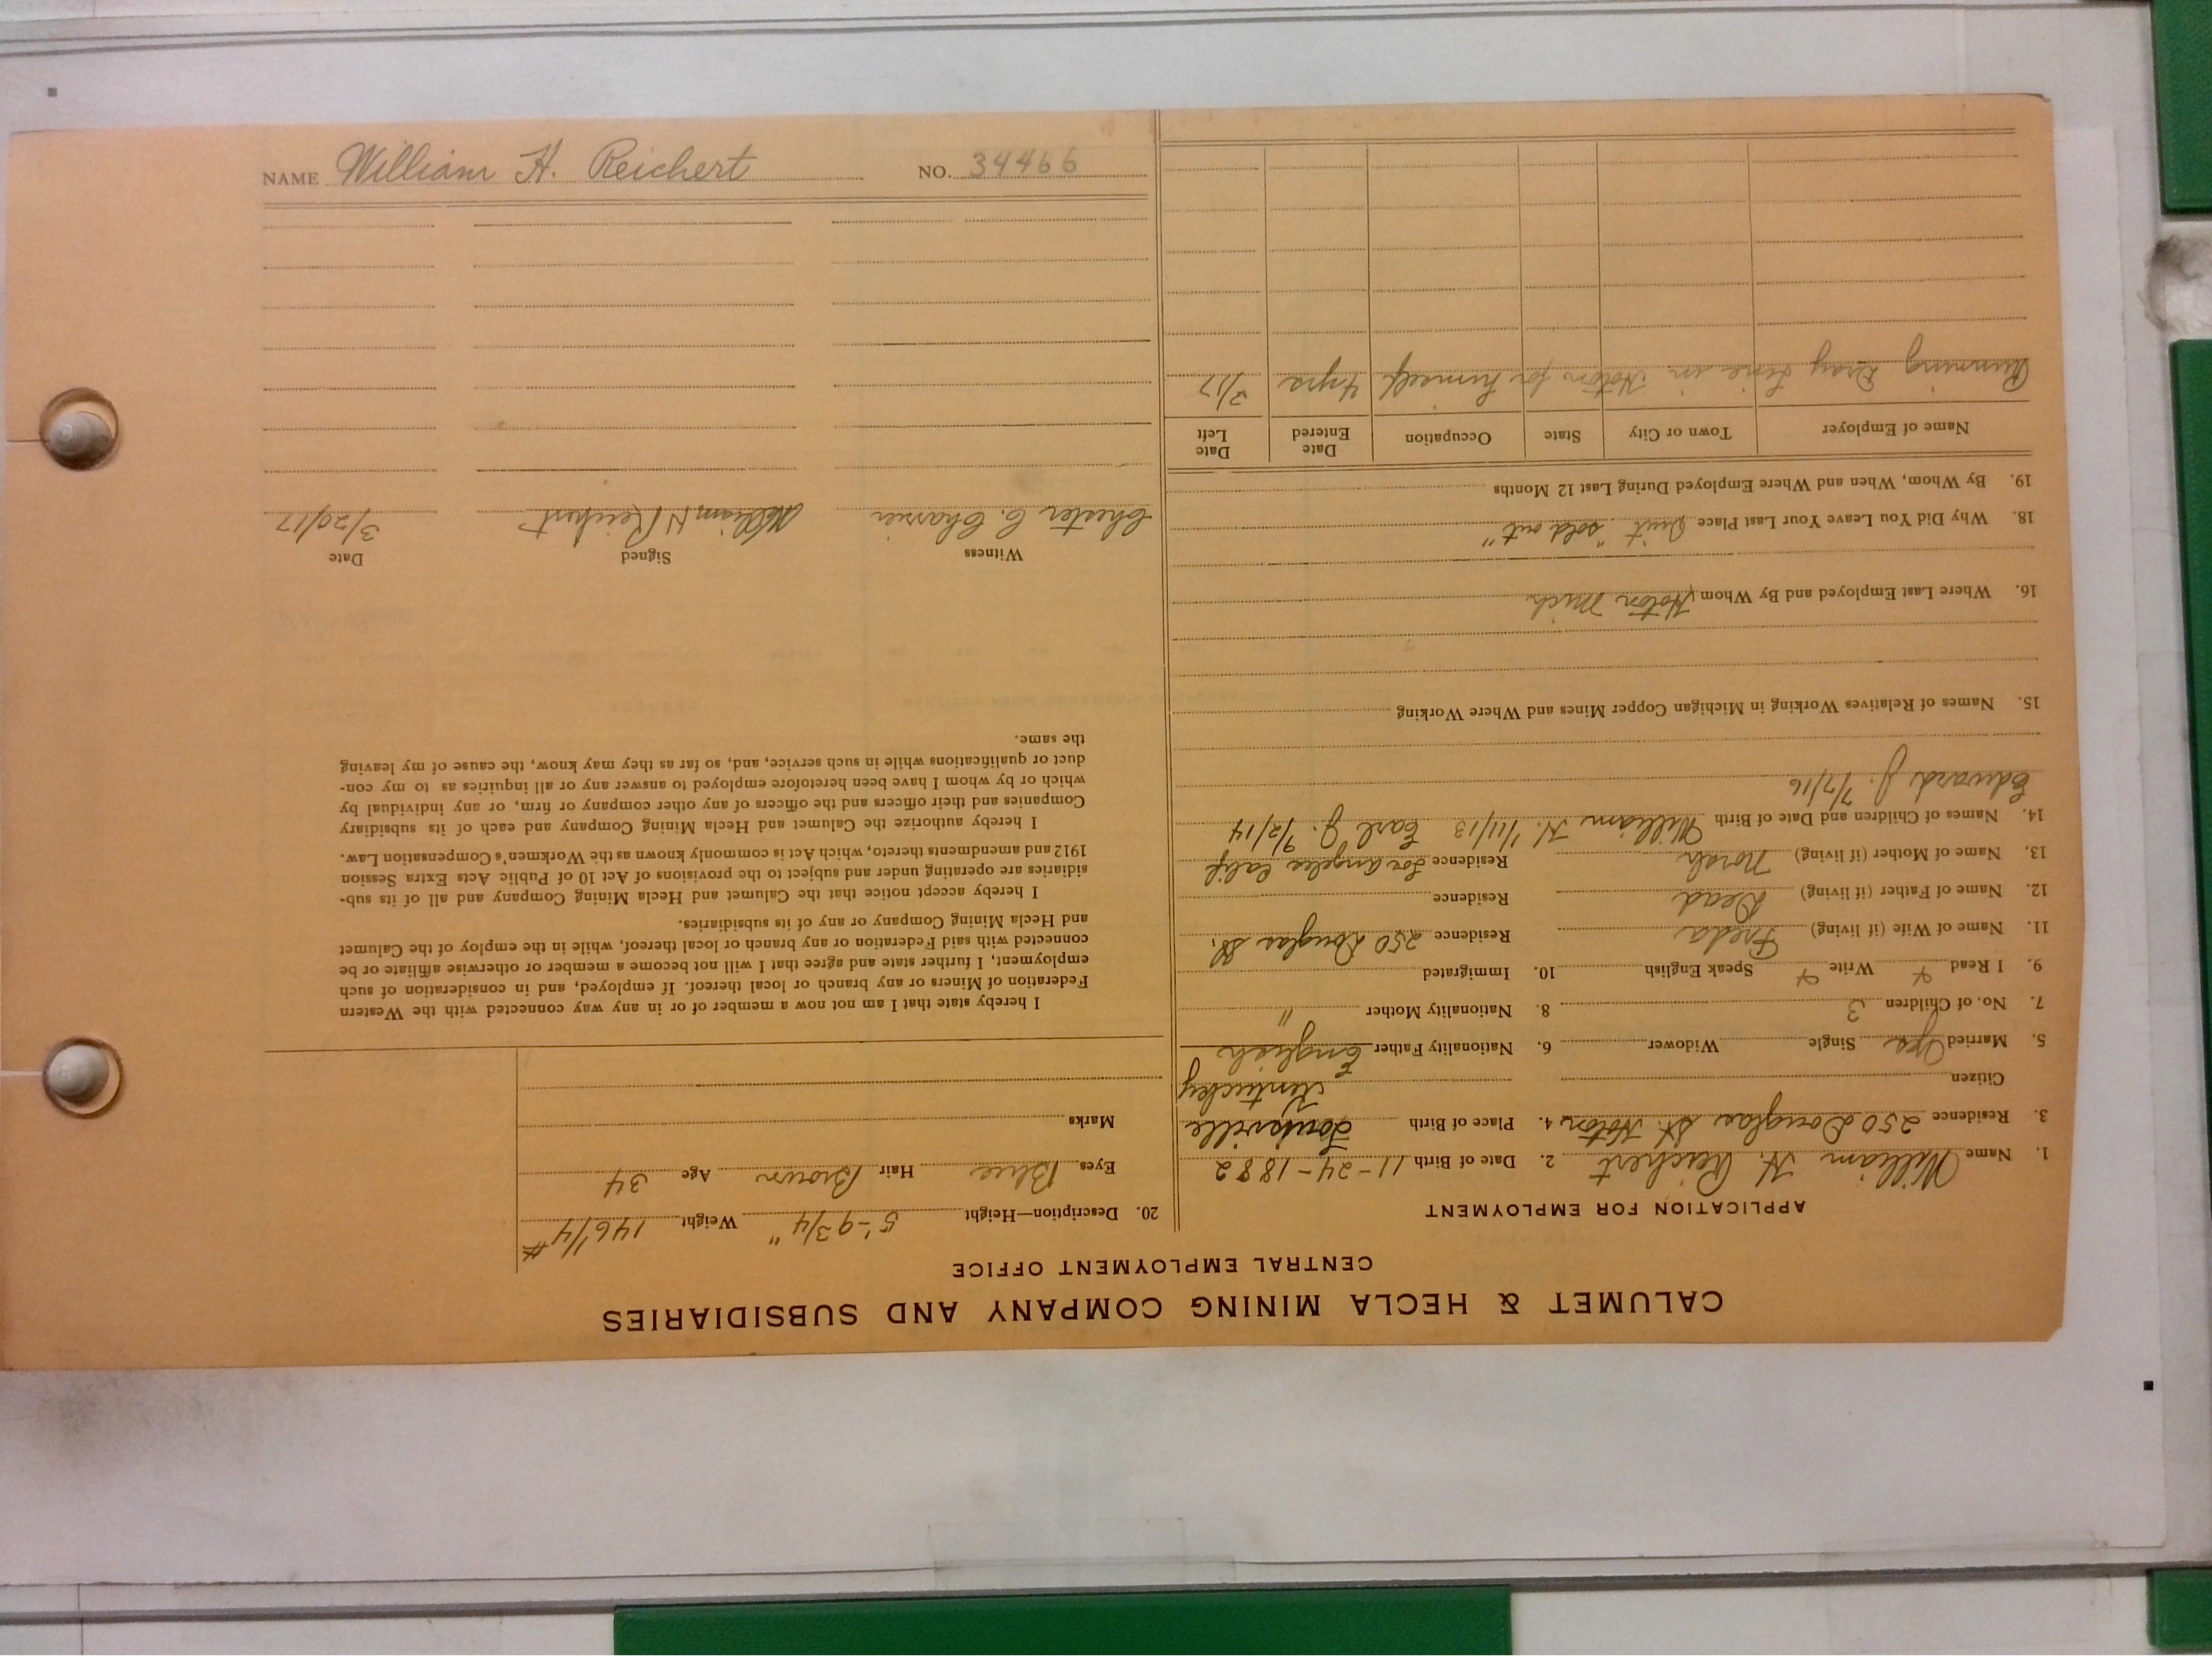 NAME William H. Reichert NO. 34466
CALUMET & HECLA MINING COMPANY AND SUBSIDIARIES
CENTRAL EMPLOYMENT OFFICE
APPLICATION FOR EMPLOYMENT
1. Name William H. Reichert 2. Date of Birth 11-24-1882
3. Residence 250 Douglas St. Hoton, 4. Place of Birth Louisville
Citizen Kentucky
5. Married Yes Single Widower 6. Nationality Father English
7. No. of Children 3 8. Nationality Mother "
9. I Read Write Speak English 10. Immigrated
11. Name of Wife (if living) Freda Residence 250 Douglas St.
12. Name of Father (if living) Dead Residence
13. Name of Mother (if living) Norah Residence Los Angeles Calif
14. Names of Children and Date of Birth William H. 1/11/13 Earl J. 9/2/14
Edward J. 7/7/16
15. Names of Relatives Working in Michigan Copper Mines and Where Working
16. Where Last Employed and By Whom Hoton Mich
18. Why Did You Leave Your Last Place Quit "sold out"
19. By Whom, When and Where Employed During Last 12 Months
Name of Employer Town or City State Occupation Date Entered Date Left
Running Dray Line in Hoton for himself 4 yrs 3/17
20. Description—Height 5'-9 3/4" Weight 146 1/4 #
Eyes Blue Hair Brown Age 34
Marks
I hereby state that I am not now a member of or in any way connected with the Western
Federation of Miners or any branch or local thereof. If employed, and in consideration of such
employment, I further state and agree that I will not become a member or otherwise affiliate or be
connected with said Federation or any branch or local thereof, while in the employ of the Calumet
and Hecla Mining Company or any of its subsidiaries.
I hereby accept notice that the Calumet and Hecla Mining Company and all of its sub-
sidiaries are operating under and subject to the provisions of Act 10 of Public Acts Extra Session
1912 and amendments thereto, which Act is commonly known as the Workmen's Compensation Law.
I hereby authorize the Calumet and Hecla Mining Company and each of its subsidiary
Companies and their officers and the officers of any other company or firm, or any individual by
which or by whom I have been heretofore employed to answer any or all inquiries as to my con-
duct or qualifications while in such service, and, so far as they may know, the cause of my leaving
the same.
Witness Signed Date
Chester C. William H Reichert 3/20/17